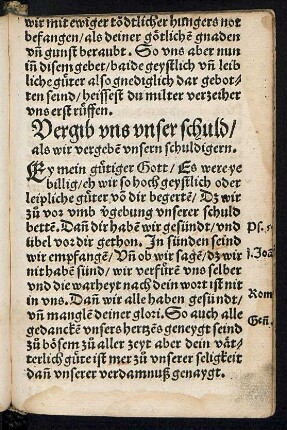 wir mit ewiger tödtlicher hungers not
befangen/als deiner götlichē gnaden
vñ gunst beraubt. So vns aber nun
in disem gebet/baide geystlich vñ leib
liche güter also gnediglich dar gebot-
ten seind/heissest du milter verzeiher
vns erst rüffen.
Vergib vns vnser schuld/
als wir vergebē vnsern schuldigern.
Ey mein gütiger Gott/Es were ye
billig/eh wir so hoch geystlich oder
leipliche güter vō dir begertē/Dz wir
zů vor vmb v̄gebung vnserer schuld
bettē. Dañ dir habē wir gesündt/vnd
übel vor dir gethon. In sünden seind
wir empfangē/Vñ ob wir sagē/dz wir
nit habē sünd/wir verfürē vns selber
vnd die warheyt nach dein wort ist nit
in vns. Dañ wir alle haben gesündt/
vñ manglē deiner glori. So auch alle
gedanckē vnsers hertzēs geneygt seind
zů bösem zů aller zeyt aber dein vät-
terlich güte ist mer zů vnserer seligkeit
dañ vnserer verdamnuß genaygt.
Ps.
j. Joā
Rom
Geñ.